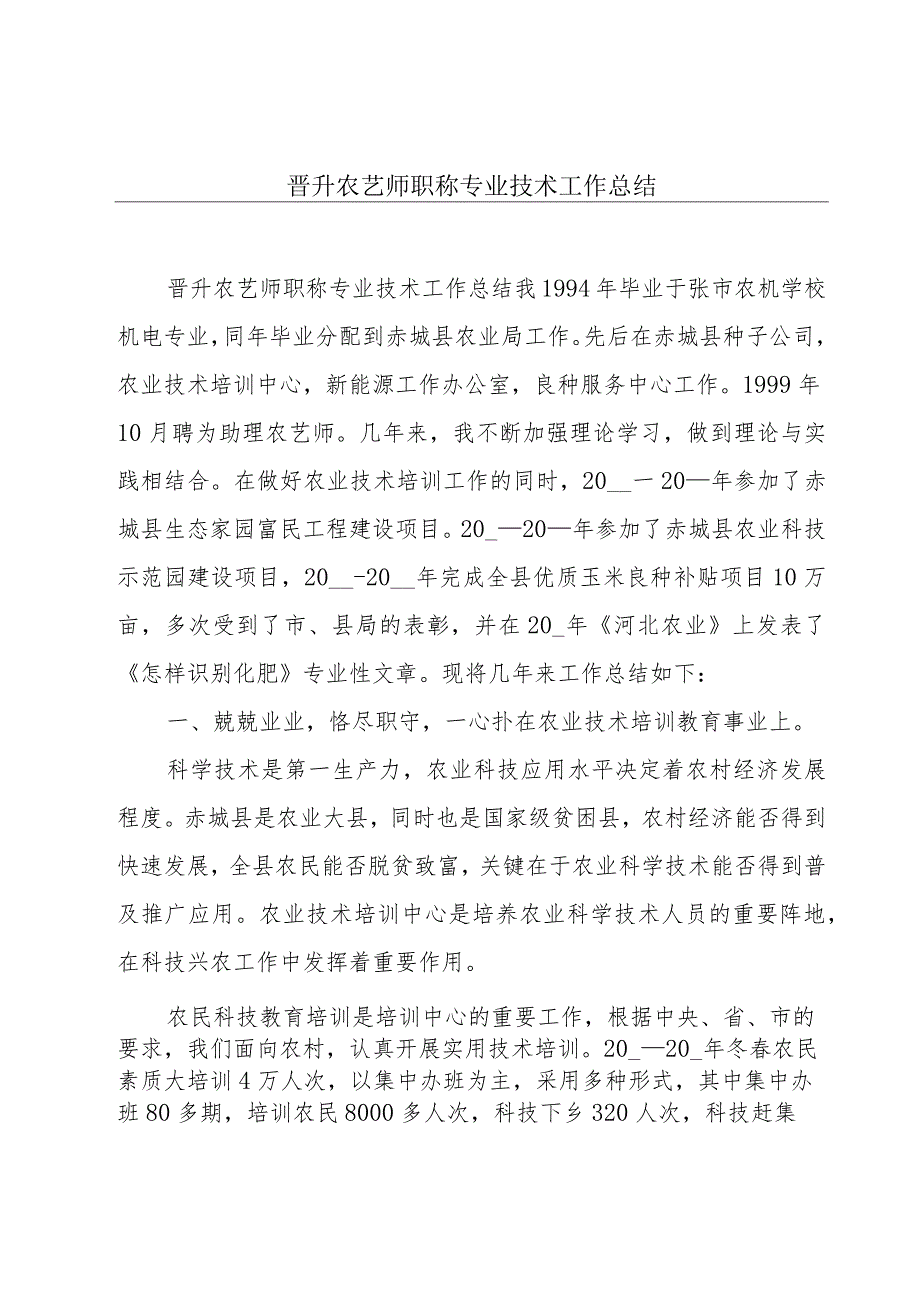 晋升农艺师职称专业技术工作总结
晋升农艺师职称专业技术工作总结我1994年毕业于张市农机学校
机电专业，同年毕业分配到赤城县农业局工作。先后在赤城县种子公司，
农业技术培训中心，新能源工作办公室，良种服务中心工作。1999年
10月聘为助理农艺师。几年来，我不断加强理论学习，做到理论与实
践相结合。在做好农业技术培训工作的同时，20__一20—年参加了赤
城县生态家园富民工程建设项目。20_—20—年参加了赤城县农业科技
示范园建设项目，20__-20__年完成全县优质玉米良种补贴项目10万
亩，多次受到了市、县局的表彰，并在20_年《河北农业》上发表了
《怎样识别化肥》专业性文章。现将几年来工作总结如下：
一、兢兢业业，恪尽职守，一心扑在农业技术培训教育事业上。
科学技术是第一生产力，农业科技应用水平决定着农村经济发展
程度。赤城县是农业大县，同时也是国家级贫困县，农村经济能否得到
快速发展，全县农民能否脱贫致富，关键在于农业科学技术能否得到普
及推广应用。农业技术培训中心是培养农业科学技术人员的重要阵地，
在科技兴农工作中发挥着重要作用。
农民科技教育培训是培训中心的重要工作，根据中央、省、市的
要求，我们面向农村，认真开展实用技术培训。20_—20_年冬春农民
素质大培训4万人次，以集中办班为主，采用多种形式，其中集中办
班80多期，培训农民8000多人次，科技下乡320人次，科技赶集